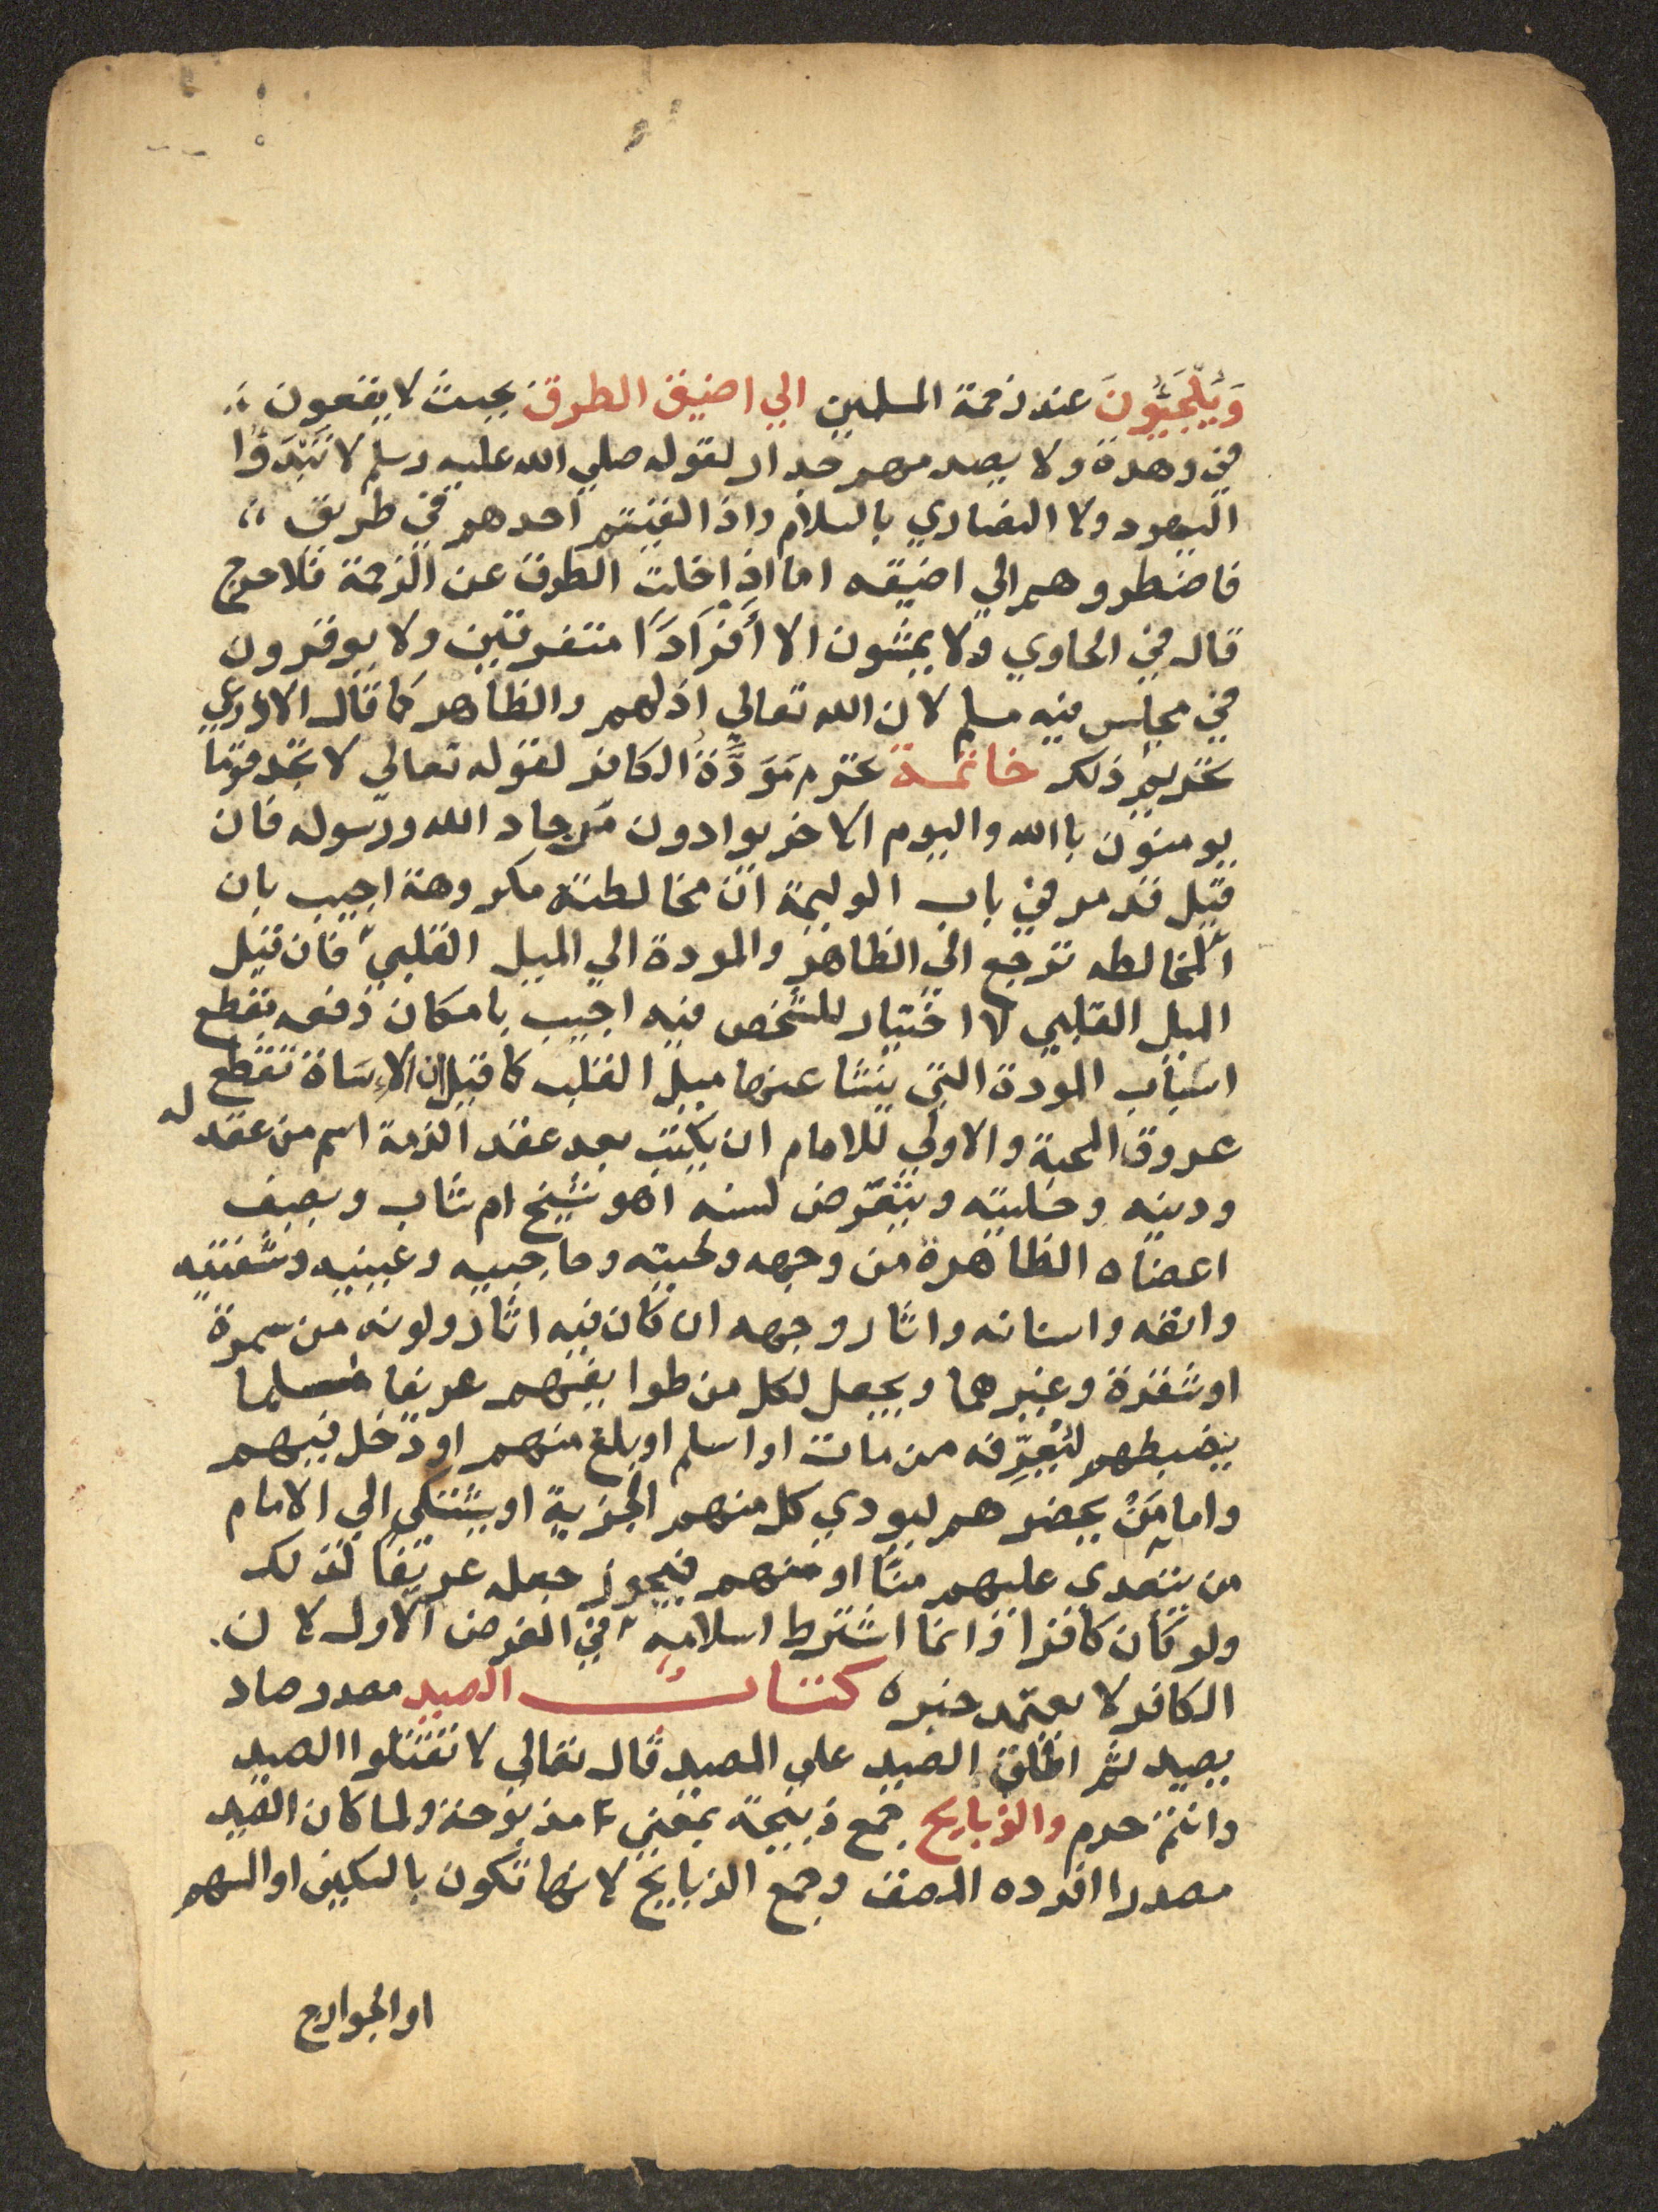 وَيُلْجَئُونَ عند زحمة المسلمين الي اضيق الطرق بحيث لا يقعون
في وهدة ولا يصدمهم جدار لقوله صلي الله عليه وسلم لا تَبْدَؤا
اليهود ولا النصاري بالسلام واذا لقيتم احدهم في طريق
فاضطروهم الي اضيقه اما اذا خلت الطرق عن الزحمة فلا حرج
قاله في الحاوي ولا يمشون الا أَفْرَادًا متفرقين ولا يوقرون
في مجلس فيه مسلم لان الله تعالي اذلهم والظاهر كما قال الاذرعي
تحريم ذلك خاتمة تحرم مَوَدَّةُ الكافر لقوله تعالي لا تجد قوما
يومنون باالله واليوم الاخر يوادون مَن حاد الله ورسوله فان
قيل قد مر في باب الوليمة ان مخالطته مكروهة اجيب بان
المخالطه ترجع الي الظاهر والمودة الي الميل القلبي فان قيل
الميل القلبي لا اختيار للشخص فيه اجيب بامكان دفعه بقطع
اسباب المودة التي ينشا عنها ميل القلب كما قيل ان الإساة تقطع
عروق المحبة والاولي للامام ان يكتب بعد عقد الذمة اسم من عقد له
ودينه وحليته ويتعرض لسنه اهو شيخ ام شاب ويصف
اعضاه الظاهرة من وجهه ولحيته وحاجبيه وعينيه وشفتيه
وانفه واسنانه واثار وجهه ان كان فيه اثار ولونه من سمرة
او شقرة وغيرهما ويجعل لكل من طوايفهم عريفا مسلما
يضبطهم لِيُعَرِّفه من مات او اسلم او بلغ منهم او دخل فيهم
واما مَنْ يحضرهم ليودي كل منهم الجزية او يشتكي الي الامام
من يتعدي عليهم منّا او منهم فيجوز جعله عريفا لذلك
ولو كان كافرا وانما اشترط اسلامه في الغرض الاول لان
الكافر لا يعتمد خبره كتاب الصيد مصدر صاد
يصيد ثم اطلق الصيد علي المصيد قال تعالي لا تقتلوا الصيد
وانتم حرم والذبايح جمع ذبيحة بمعني مذبوحة ولما كان الصيد
مصدرا افرده المصنف وجمع الذبايح لانها تكون بالسكين او السهم
او الجوارح